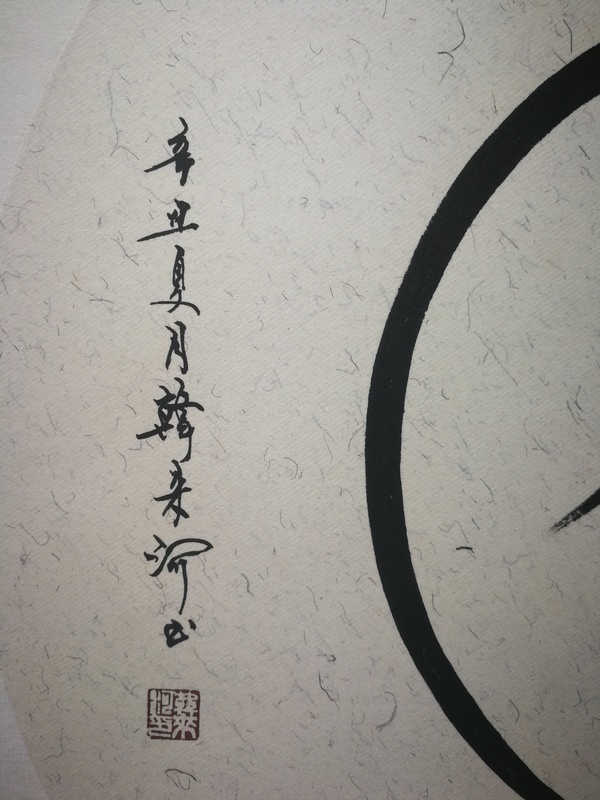 辛丑夏月韩来河书
韩来河印